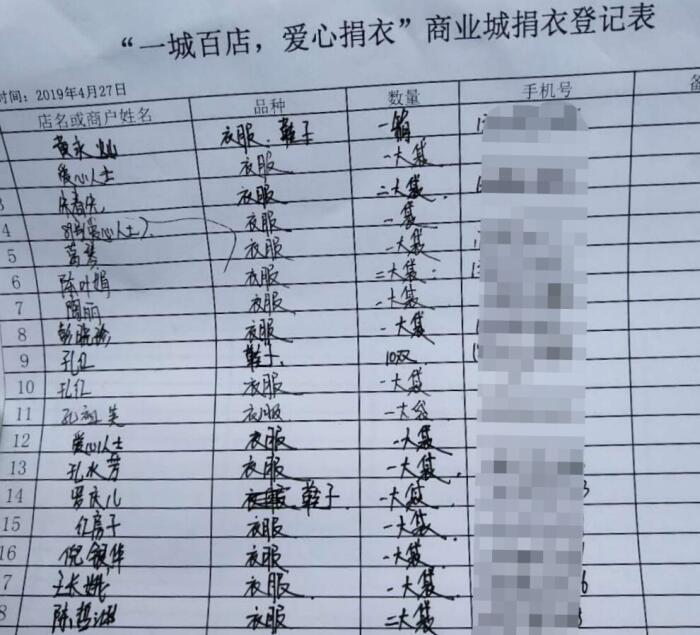 “一城百店，爱心捐衣”商业城捐衣登记表
时间：2019年4月27日
店名或商户姓名 品种 数量 手机号 备
黄永灿 衣服、鞋子 一箱
爱心人士 衣服 一大袋
3 衣服 二大袋
4 爱心人士） 衣服 一袋
5 衣服 一大袋
6 陈叶娟 衣服 三大袋
7 陶丽 衣服 一大袋
8 彭 衣服 一大袋
9 孔红 鞋子 10双
10 孔红 衣服 一大袋
11 孔 衣服 一大袋
12 爱心人士 衣服 一大袋
13 孔水芳 衣服 一大袋
14 罗庆儿 鞋子 一大袋
15 红房子 衣服 一大袋
16 倪银华 衣服 一大袋
7 王长娥 衣服 一大袋
8 陈哲 衣服 二大袋